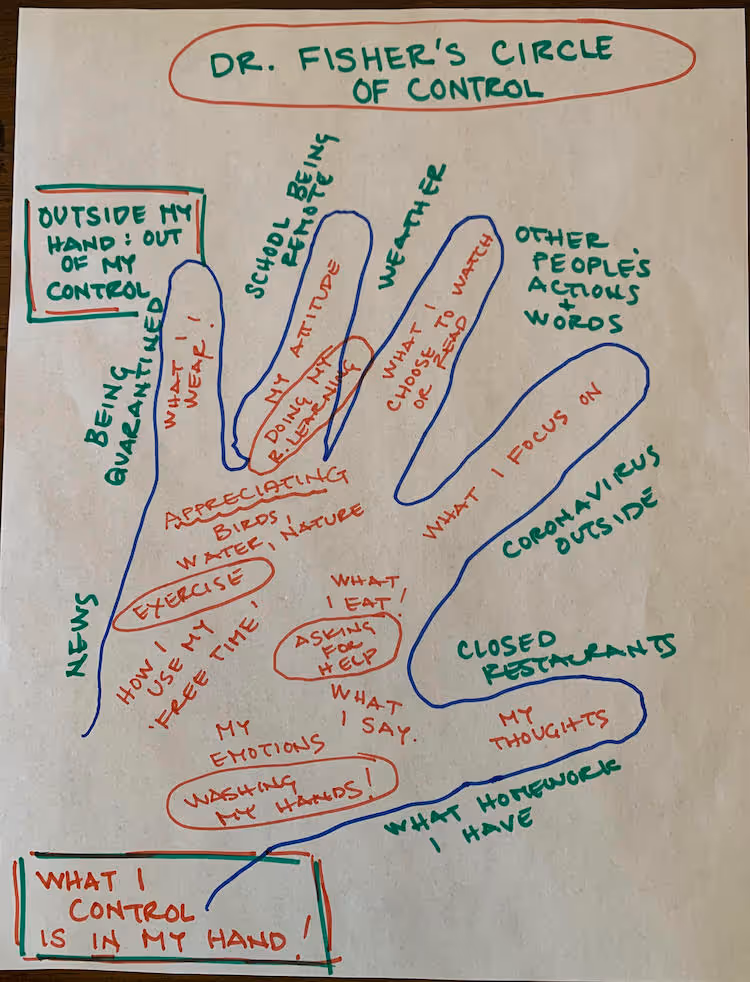 DR. FISHER'S CIRCLE
OF CONTROL
OUTSIDE MY
HAND: OUT
OF MY
CONTROL
BEING
QUARANTINED
NEWS
SCHOOL BEING
REMOTE
WEATHER
OTHER
PEOPLE'S
ACTIONS
+
WORDS
CORONAVIRUS
OUTSIDE
CLOSED
RESTAURANTS
WHAT HOMEWORK
I HAVE
WHAT I
WEAR!
MY ATTITUDE
DOING MY
R. LEARNING
WHAT I
CHOOSE TO WATCH
OR READ
WHAT I FOCUS ON
APPRECIATING
BIRDS,
WATER, NATURE
EXERCISE
HOW I
USE MY
'FREE TIME'
WHAT
I EAT!
ASKING
FOR
HELP
WHAT
I SAY.
MY
THOUGHTS
MY
EMOTIONS
WASHING
MY HANDS!
WHAT I
CONTROL
IS IN MY HAND!